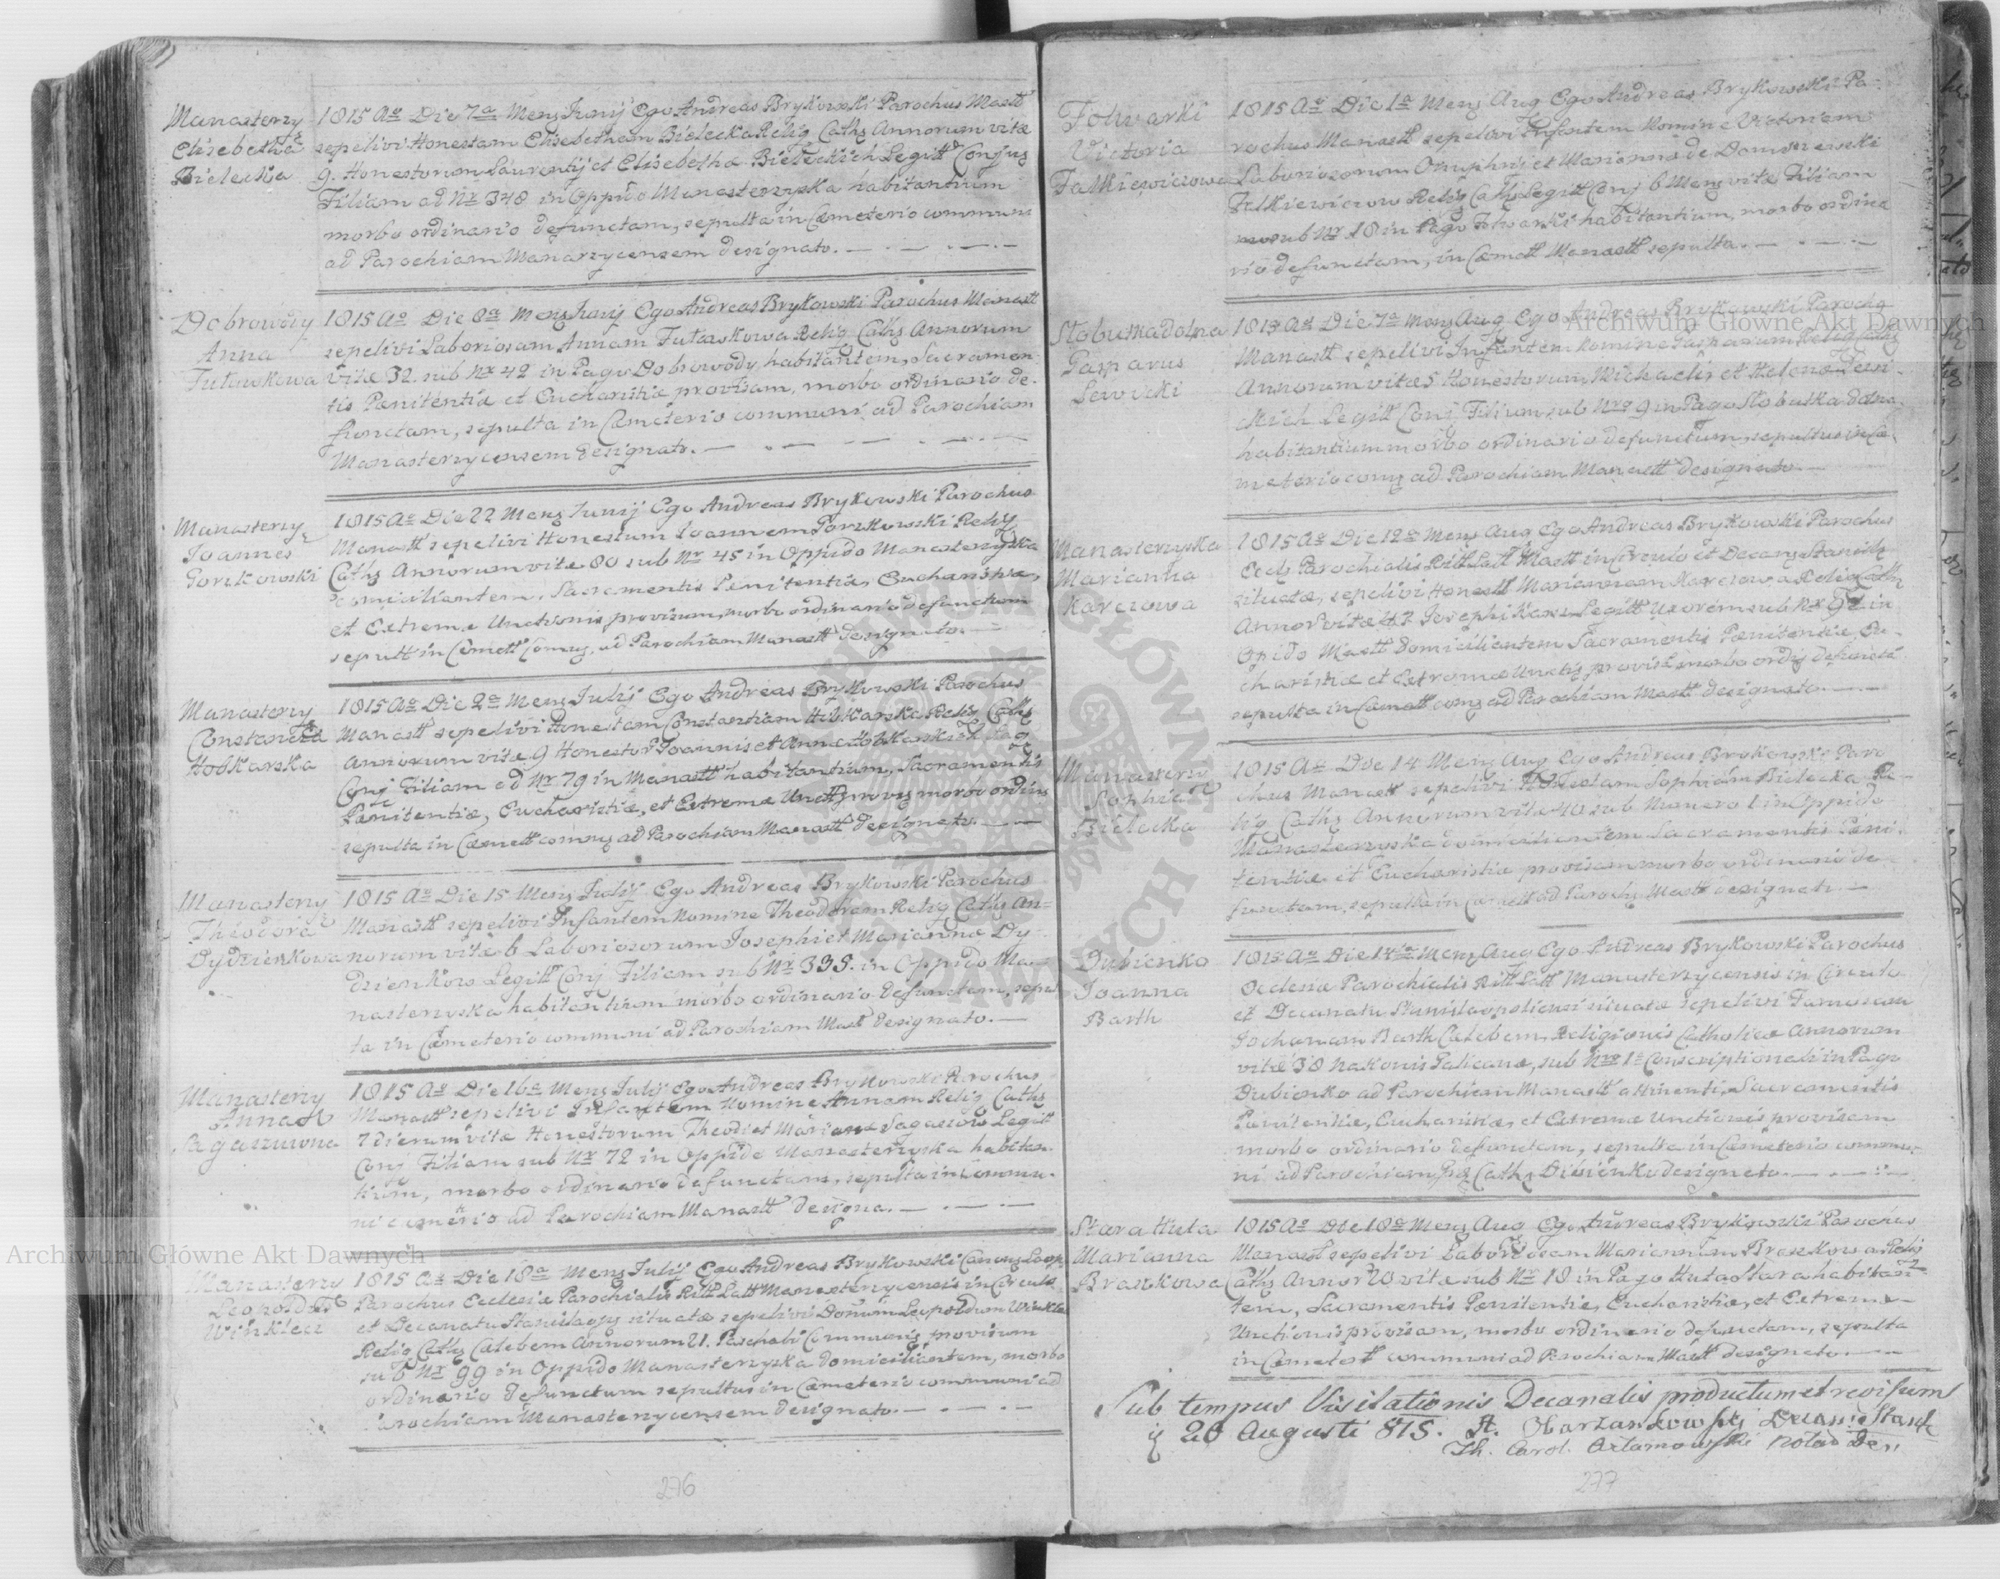 Manasterzy
Elisebetha
Bielecka
1815 Ao Die 7a Mens Junij Ego Andreas Brykowski Parochus Manastt
sepelivi Honestam Elisebetham Bielecka Relig Caths Annorum vitæ
9. Honestorum Laurentij et Elisebetha Bieleckich Legitt Conjug
Filiam ad Nr 348 in Oppido Manasterzyska habitantium
morbo ordinario defunctam, sepulta in Cæmeterio communi
ad Parochiam Manarzycensem designato.
Dobrowody
Anna
Futowkowa
1815 Ao Die 8a Mens Junij Ego Andreas Brykowski Parochus Manastt
sepelivi Laboriosam Annam Relig Caths Annorum
vitæ 32 sub Nr 42 in Pago Dobrowody habitantem, Sacramen-
tis Pænitentiæ et Eucharistiæ provisam, morbo ordinario de-
functam, sepulta in Cæmeterio communi ad Parochiam
Manasterzycensem designato.
Manasterzy
Joannes
Porzkowski
1815 Ao Die 22 Mens Junij Ego Andreas Brykowski Parochus
Manastt sepelivi Honestum Joannem Porzkowski Relig
Caths Annorum vitæ 80 sub Nr 45 in Oppido Manasterzyska
Sacramentis Pænitentiæ, Eucharistiæ,
et Extremæ Unctionis provisum, morbo ordinario defunctum
sepult in Cæmett Comuj, ad Parochiam Manastt designato.
Manasterzy
Constancia
Hobkarska
1815 Ao Die 2a Mens Julij Ego Andreas Brykowski Parochus
Manastt sepelivi Honestam Constantiam Hobkarska Relig Caths
Annorum vitæ 9 Honestor Joannis et Anna Hobkarskich Leg
Conj Filiam ad Nr 79 in Manastt habitantium, Sacramentis
Pænitentiæ, Eucharistiæ, et Extremæ Unctt provis morbo ordin
sepulta in Cæmett comuj ad Parochiam Manastt designato.
Manasterzy
Theodora
Dydzienkowa
1815 Ao Die 15 Mens Julij Ego Andreas Brykowski Parochus
Manastt sepelivi Infantem Nomine Theodoram Relig Caths An-
norum vitæ 6 Laboriosorum Josephi et Marianna Dy
dzienkow Legitt Conj Filiam sub Nr 335. in Oppido Ma-
nasterzyska habitantium morbo ordinario defunctam, sepul
ta in Cæmeterio communi ad Parochiam Mastt designato.
Manasterzy
Anna
Sagaszuwna
1815 Ao Die 16a Mens Julij Ego Andreas Brykowski Parochus
Manastt sepelivi Infantem Nomine Annam Relig Caths
7 dierum vitæ Honestorum Theodi et Mariana Sagaszow Legitt
Conj Filiam sub Nr 72 in Oppido Manasterzyska habitan-
tium, morbo ordinario defunctam, sepulta in Commu-
ni cæmeterio ad Parochiam Manastt designa.
Manasterzy
Leopoldus
Winkler
1815 Ao Die 18a Mens Julij Ego Andreas Brykowski
Parochus Ecclesiæ Parochialis Ritt Latt Manasterzycensis in Circulo
et Decanatu situatæ sepelivi Donum Leopoldum Winkler
Relig Caths Cælebem Annorum 21. provisum
sub Nr 99 in Oppido Manasterzyska domiciliantem, morbo
ordinario defunctum sepultus in Cæmeterio communi ad
Parochiam Manasterzycensem designato.
276
Folwarki
Victoria
Falkiewiczowa
1815 Ao Die 1a Mens Aug Ego Andreas Brykowski Pa-
rochus Manastt sepelivi Infantem Nomine Victoriam
Laboriosorum Onuphri et Marianna de
Falkiewiczow Relig Caths Legitt Conj 6 Mens vitæ Filiam
sub Nr 18 in Pago Folwarki habitantium, morbo ordina
rio defunctam, in Cæmett Manastt sepulta.
Slobutka dolna
Gasparus
Lewicki
1815 Ao Die 7a Mens Aug Ego Andreas Brykowski Parochg
Manastt sepelivi Infantem Nomine Gasparum Relig Caths
Annorum vitæ 5 Honestorum Michaelis et Helena Lewi-
ckich Legitt Conj Filium sub Nro 9 in Pago Slobutka dolna
habitantium morbo ordinario defunctum, sepultus in Cæ-
meterio comuj ad Parochiam Manastt designato.
Manasterzyska
Marianna
Karczowa
1815 Ao Die 12a Mens Aug Ego Andreas Brykowski Parochus
Eccls Parochialis Ritt Latt Mastt in Circulo et Decang Stanisl
situatæ, sepelivi Honestt Mariannam Karczowa Relig Caths
Annor vitæ 42 Josephi Karz Legitt Uxorem sub Nr 92 in
Opido Mastt Domiciliantem Sacramentis Pænitentiæ, Eu-
charistiæ et Extremæ Unctis provis morbo ordij defuncta
sepulta in Cæmett comuj ad Parochiam Mastt designato.
Manasterzy
Sophia
Bielecka
1815 Ao Die 14 Mens Aug Ego Andreas Brykowski Paro
chus Manastt sepelivi Honestam Sophiam Bielecka Re-
lig Caths Annorum vitæ 40 sub Numero 1 in Oppido
Manasterzyska domiciliantem Sacramentis Pæni-
tentiæ et Eucharistiæ provisam morbo ordinario de-
functam, sepulta in Cæmett ad Parochs Mastt designato.
Dubienko
Joanna
Barth
1815 Ao Die 14ta Mens Aug Ego Andreas Brykowski Parochus
Ecclesiæ Parochialis Ritt Latt Manasterzycensis in Circulo
et Decanatu Stanislaopoliensi situatæ sepelivi Famosam
Johanam Barth Cælebem, Religionis Catholicæ Annorum
vitæ 38 sub Nro 1o Conscriptionali in Pago
Dubienko ad Parochiam Manastt attinenti, Sacramentis
Pænitentiæ, Eucharistiæ, et Extremæ Unctionis provisam
morbo ordinario defunctam, sepulta in Cæmeterio commu-
ni ad Parochiam Caths Dubienko designato.
Stara Huta
Marianna
Braszkowa
1815 Ao Die 18a Mens Aug Ego Andreas Brykowski Parochus
Manastt sepelivi Laboriosam Mariannam Braszkowa Relig
Caths Annor 70 vitæ sub Nr 18 in Pago Huta Stara habitan-
tem, Sacramentis Pænitentiæ, Eucharistiæ, et Extremæ
Unctionis provisam, morbo ordinario defunctam, sepulta
in Cæmetertt communi ad Parochiam Mastt designato.
Sub tempus Visitationis Decanalis productum et revisum
20 Augusti 815. Decan Stanl
Th. Carol. Artamowski Notad Dec
277
Archiwum Główne Akt Dawnych
Archiwum Główne Akt Dawnych
ARCHIWUM GŁÓWNE AKT DAWNYCH